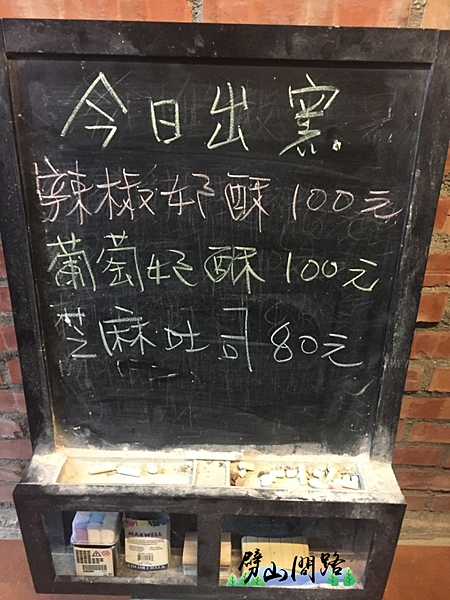 今日出窯
辣椒奶酥 100元
葡萄奶酥 100元
芝麻吐司 80元
MAXWELL
COLOR CHALK
劈山問路